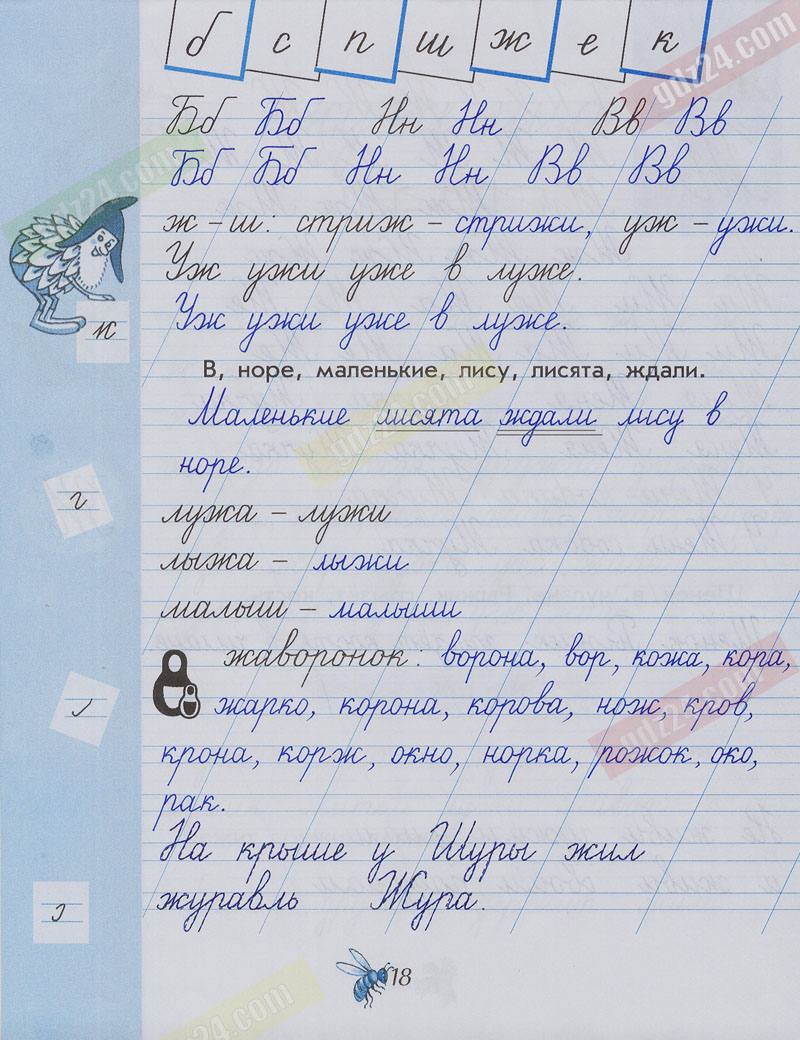 б с п ш ж е к
gdz24.com
Бб Бб Нн Нн Вв Вв
Бб Бб Нн Нн Вв Вв
ж – ш: стриж – стрижи, уж – ужи.
Уж ужи уже в луже.
к
Уж ужи уже в луже.
В, норе, маленькие, лису, лисята, ждали.
Маленькие лисята ждали лису в
норе.
г
лужа – лужи
лыжа – лыжи
малыш – малыши
жаворонок: ворона, вор, кожа, кора,
жарко, корона, корова, нож, кров,
крона, корж, окно, норка, рожок, око,
рак.
На крыше у Шуры жил
журавль Жура.
18
gdz24.com